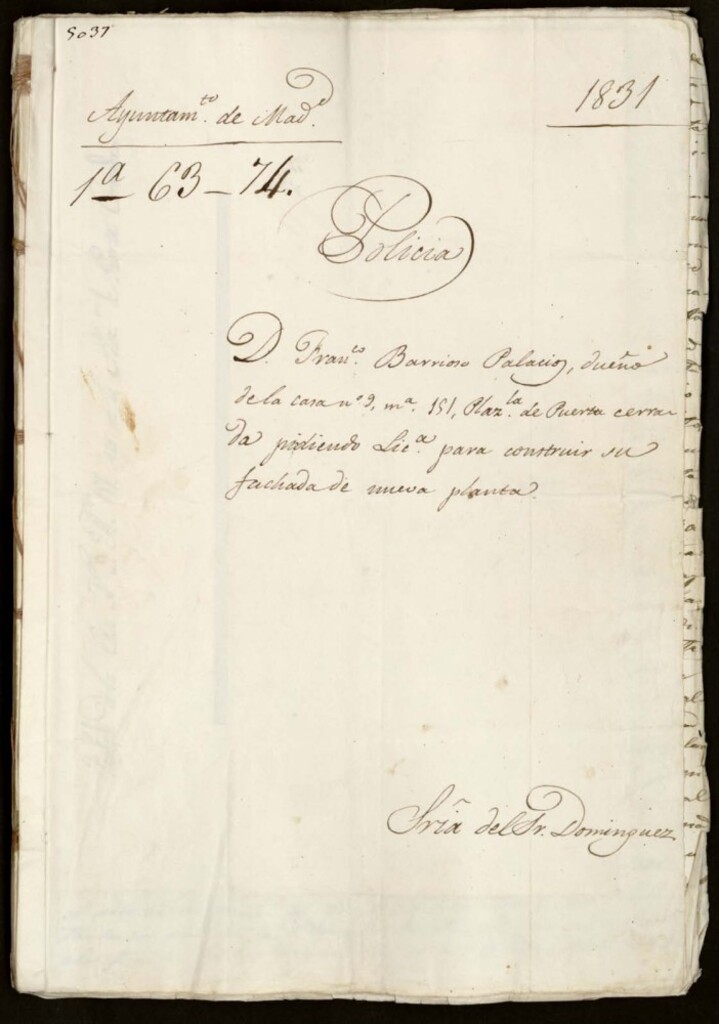 5037
Ayuntam.to de Mad.d
1831
1a 63-74.
Policia
D. Fran.co Barrioso Palacios, dueño
de la casa nº 9, m.a 151, Plaz.la de Puerta cerra-
da pidiendo Lic.a para construir su
fachada de nueva planta.
Sria del Sr. Dominguez